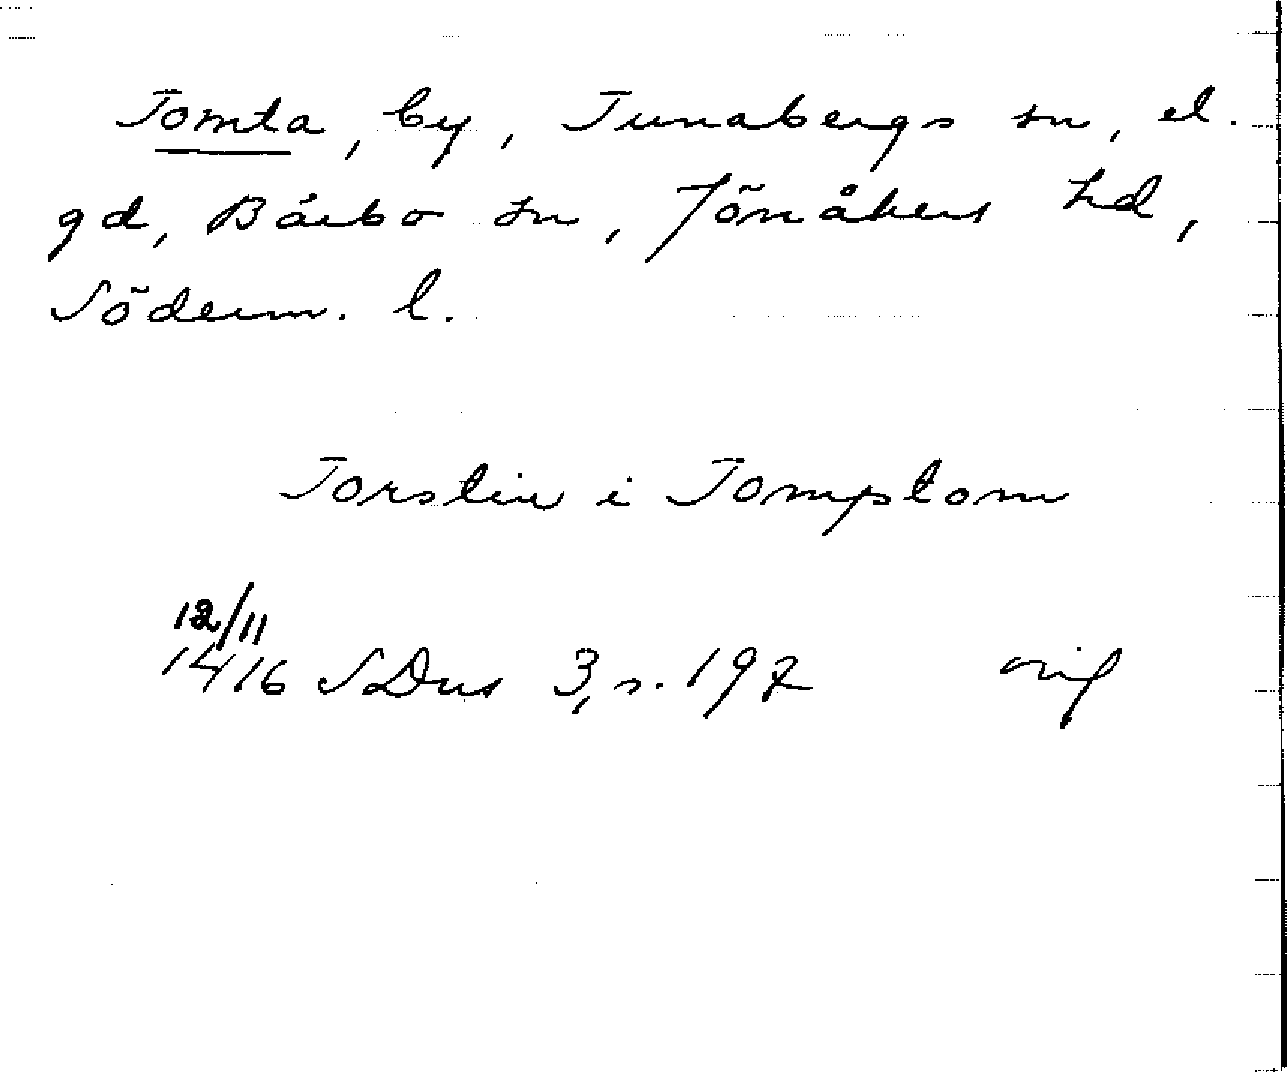 Tomta, by, Tunabergs sn, el.
gd, Bärbo sn, Jönåkers hd,
Söderm. l.
Torstin i Tomptom
12/11
1416 SDns 3, s. 197 orig